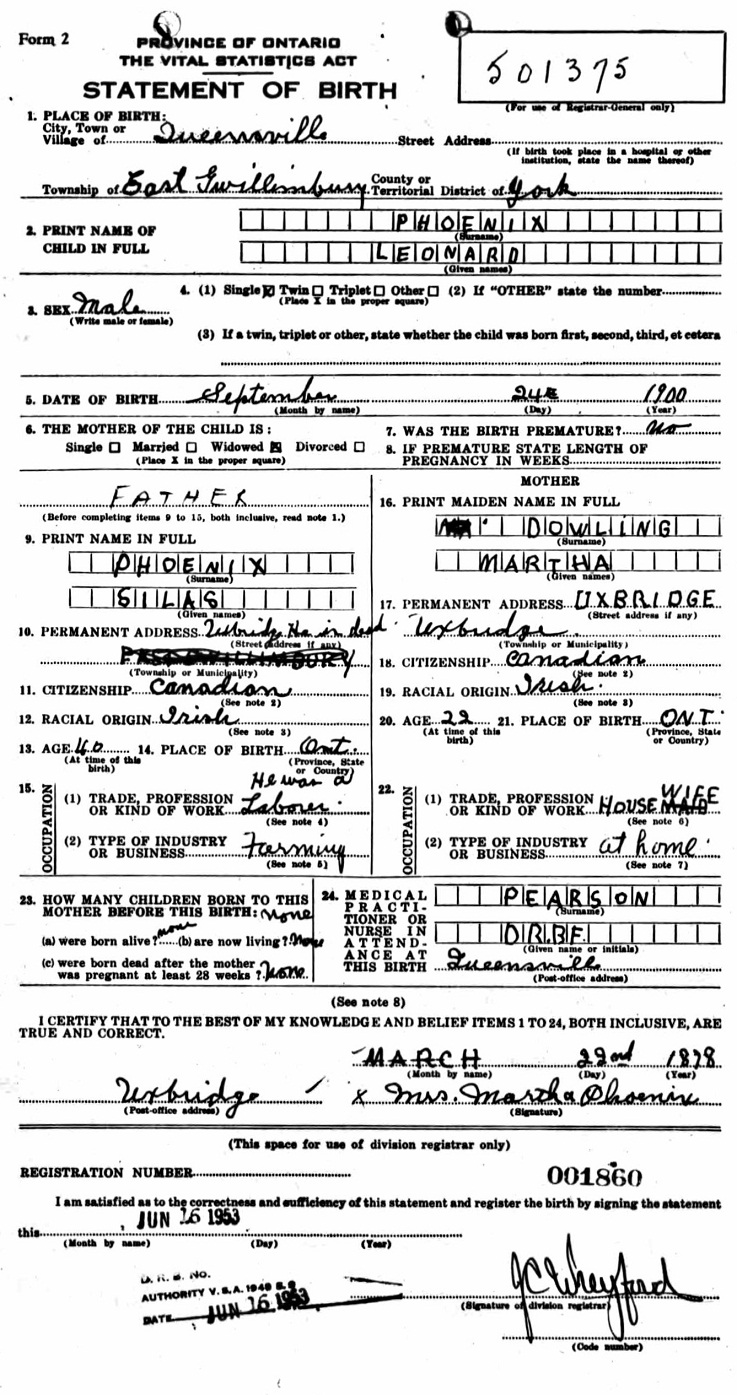 Form 2
PROVINCE OF ONTARIO
THE VITAL STATISTICS ACT
STATEMENT OF BIRTH
501375
(For use of Registrar-General only)
1. PLACE OF BIRTH:
City, Town or
Village of Queensville Street Address
(If birth took place in a hospital or other
institution, state the name thereof)
Township of East Gwillimbury County or
Territorial District of York
2. PRINT NAME OF
CHILD IN FULL
PHOENIX
(Surname)
LEONARD
(Given names)
3. SEX Male
(Write male or female)
4. (1) Single ☒ Twin ☐ Triplet ☐ Other ☐ (2) If "OTHER" state the number
(Place X in the proper square)
(3) If a twin, triplet or other, state whether the child was born first, second, third, et cetera
5. DATE OF BIRTH September 24th 1900
(Month by name) (Day) (Year)
6. THE MOTHER OF THE CHILD IS:
Single ☐ Married ☐ Widowed ☒ Divorced ☐
(Place X in the proper square)
7. WAS THE BIRTH PREMATURE? No
8. IF PREMATURE STATE LENGTH OF
PREGNANCY IN WEEKS
FATHER
(Before completing items 9 to 15, both inclusive, read note 1.)
9. PRINT NAME IN FULL
PHOENIX
(Surname)
SILAS
(Given names)
10. PERMANENT ADDRESS Uxbridge He is dead
(Street address if any)
EAST GWILLIMBURY
(Township or Municipality)
11. CITIZENSHIP Canadian
(See note 2)
12. RACIAL ORIGIN Irish
(See note 3)
13. AGE 40 14. PLACE OF BIRTH Ont.
(At time of this
birth)
(Province, State
or Country)
He was a
15. OCCUPATION
(1) TRADE, PROFESSION
OR KIND OF WORK Laborer
(See note 4)
(2) TYPE OF INDUSTRY
OR BUSINESS Farming
(See note 5)
MOTHER
16. PRINT MAIDEN NAME IN FULL
DOWLING
(Surname)
MARTHA
(Given names)
17. PERMANENT ADDRESS UXBRIDGE
(Street address if any)
Uxbridge
(Township or Municipality)
18. CITIZENSHIP Canadian
(See note 2)
19. RACIAL ORIGIN Irish
(See note 3)
20. AGE 22 21. PLACE OF BIRTH ONT
(At time of this
birth)
(Province, State
or Country)
22. OCCUPATION
(1) TRADE, PROFESSION
OR KIND OF WORK HOUSEMAID WIFE
(See note 6)
(2) TYPE OF INDUSTRY
OR BUSINESS at home
(See note 7)
23. HOW MANY CHILDREN BORN TO THIS
MOTHER BEFORE THIS BIRTH: None
(a) were born alive? none (b) are now living? None
(c) were born dead after the mother
was pregnant at least 28 weeks? None
24. MEDICAL
PRACTI-
TIONER OR
NURSE IN
ATTEND-
ANCE AT
THIS BIRTH
PEARSON
(Surname)
DR.B.F.
(Given name or initials)
Queensville
(Post-office address)
(See note 8)
I CERTIFY THAT TO THE BEST OF MY KNOWLEDGE AND BELIEF ITEMS 1 TO 24, BOTH INCLUSIVE, ARE
TRUE AND CORRECT.
MARCH 22nd 1878
(Month by name) (Day) (Year)
Uxbridge x Mrs. Martha Phoenix
(Post-office address) (Signature)
(This space for use of division registrar only)
REGISTRATION NUMBER 001860
I am satisfied as to the correctness and sufficiency of this statement and register the birth by signing the statement
this JUN 16 1953
(Month by name) (Day) (Year)
D. R. B. NO.
AUTHORITY V. S. A. 1948 S. 9
DATE JUN 16 1953
(Signature of division registrar)
(Code number)